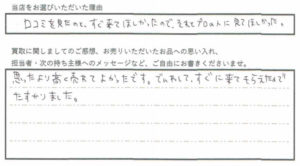 当店をお選びいただいた理由
口コミを見たのと、すぐ来てほしかったので、それとプロの人に見てほしかった。
買取に関しましてのご感想、お売りいただいたお品への思い入れ、
担当者・次の持ち主様へのメッセージなど、ご自由にお書きくださいませ。
思ったより高く売れてよかったです。でんわして、すぐに来てもらえたので
たすかりました。